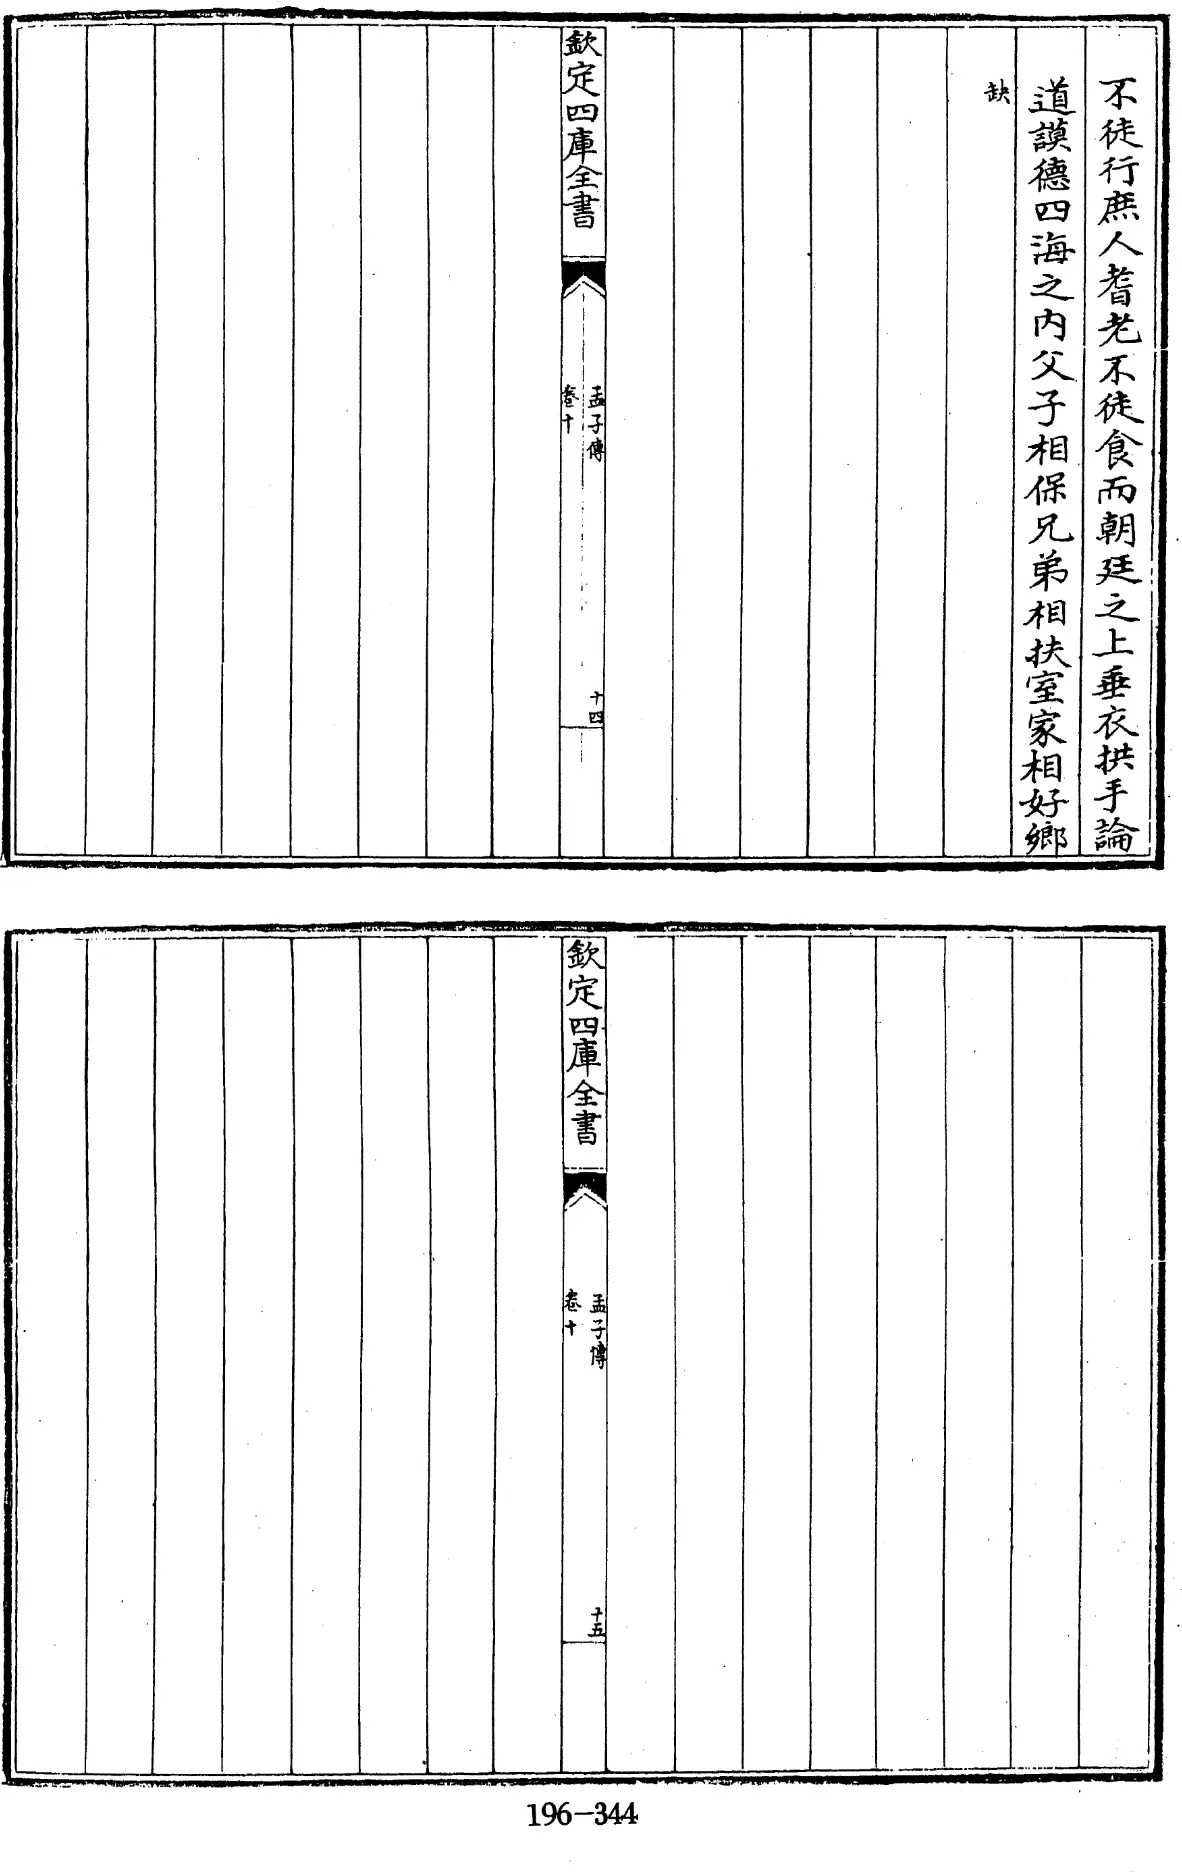 不徒行庶人耆老不徒食而朝廷之上垂衣拱手論
道謨德四海之内父子相保兄弟相扶室家相好鄉
缺
欽定四庫全書
孟子傳
卷十
十四
欽定四庫全書
孟子傳
卷十
十五
196-344